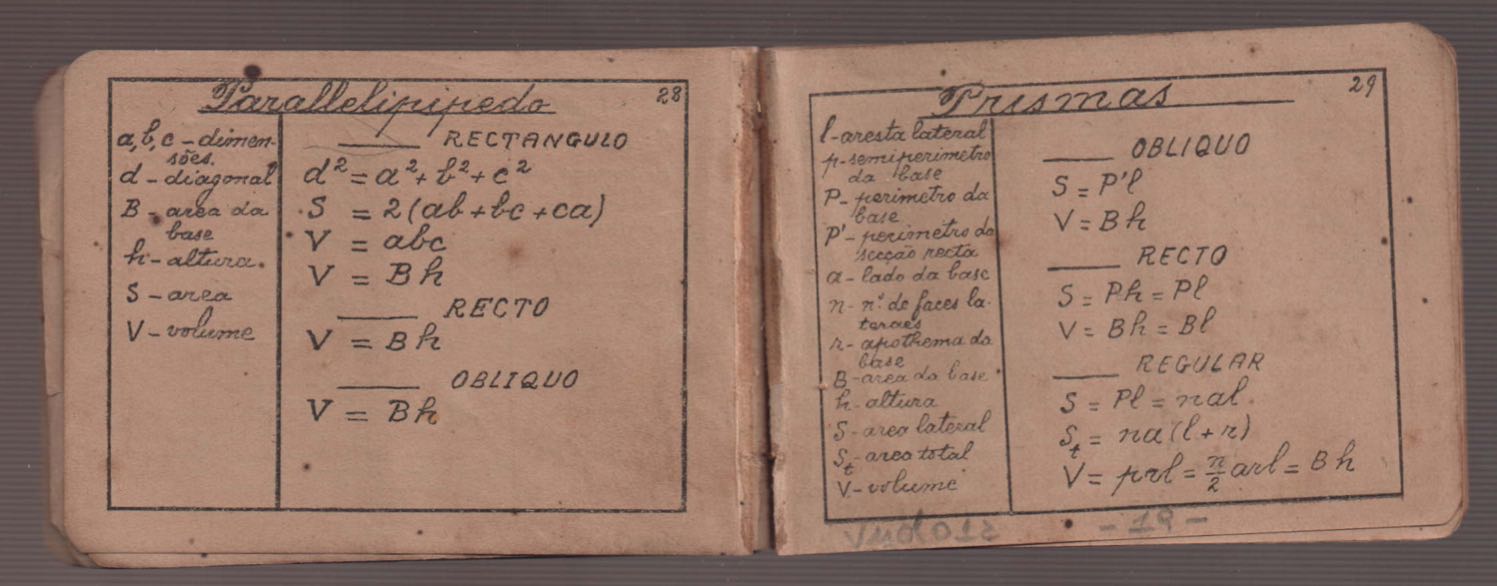 Parallelipipedo 28
a, b, c – dimen-
sões.
d – diagonal
B – area da
base
h – altura.
S – area
V – volume
____ RECTANGULO
d² = a² + b² + c²
S = 2(ab + bc + ca)
V = abc
V = Bh
____ RECTO
V = Bh
____ OBLIQUO
V = Bh
Prismas 29
l – aresta lateral
p – semiperimetro
da base
P – perimetro da
base
P' – perimetro da
secção recta
a – lado da base
n – nº de faces la-
teraes
r – apothema da
base
B – area da base
h – altura
S – area lateral
Sₜ – area total
V – volume
____ OBLIQUO
S = P'l
V = Bh
____ RECTO
S = Ph = Pl
V = Bh = Bl
____ REGULAR
S = Pl = nal.
Sₜ = na(l + r)
V = prl = n/2 arl = Bh
- 19 -